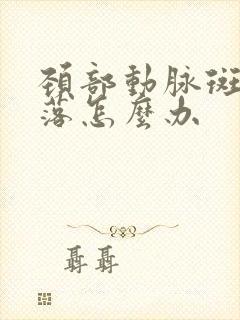 頸部動脉斑
落怎麼办
聶聶